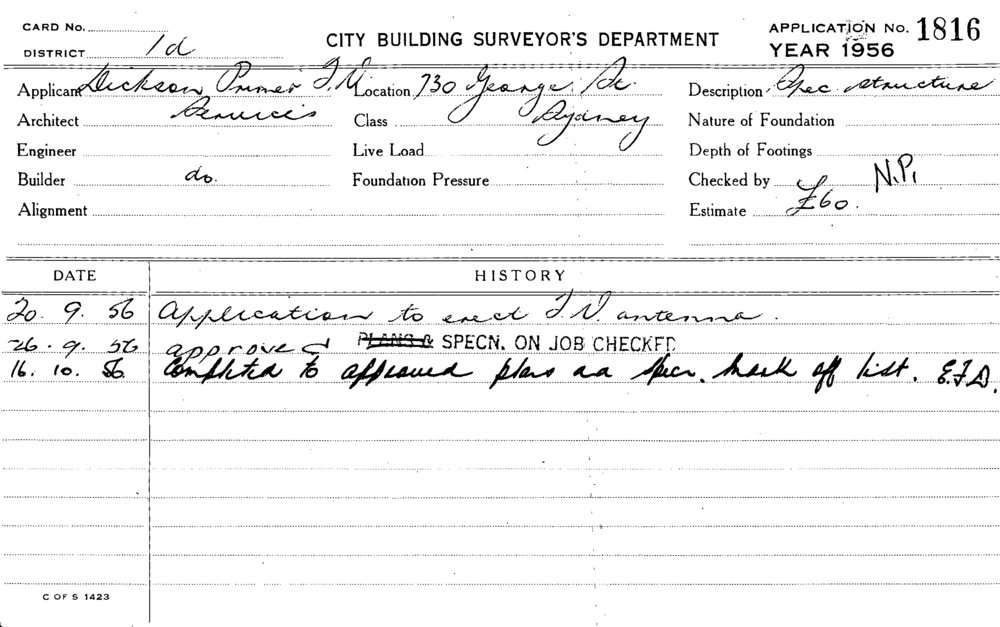 CARD No.
DISTRICT 1d
CITY BUILDING SURVEYOR'S DEPARTMENT
APPLICATION No. 1816
YEAR 1956
Applicant Dickson Primer T.V. Location 730 George St Description Spec. structure
Architect Services Class Sydney Nature of Foundation
Engineer Live Load Depth of Footings
Builder do. Foundation Pressure Checked by N.P.
Alignment Estimate £60.
DATE HISTORY
20. 9. 56 Application to erect T.V. antenna.
26. 9. 56 approved PLANS & SPECN. ON JOB CHECKED
16. 10. 56. Completed to approved plans aa specn. Mark off list. E.F.D.
C OF S 1423